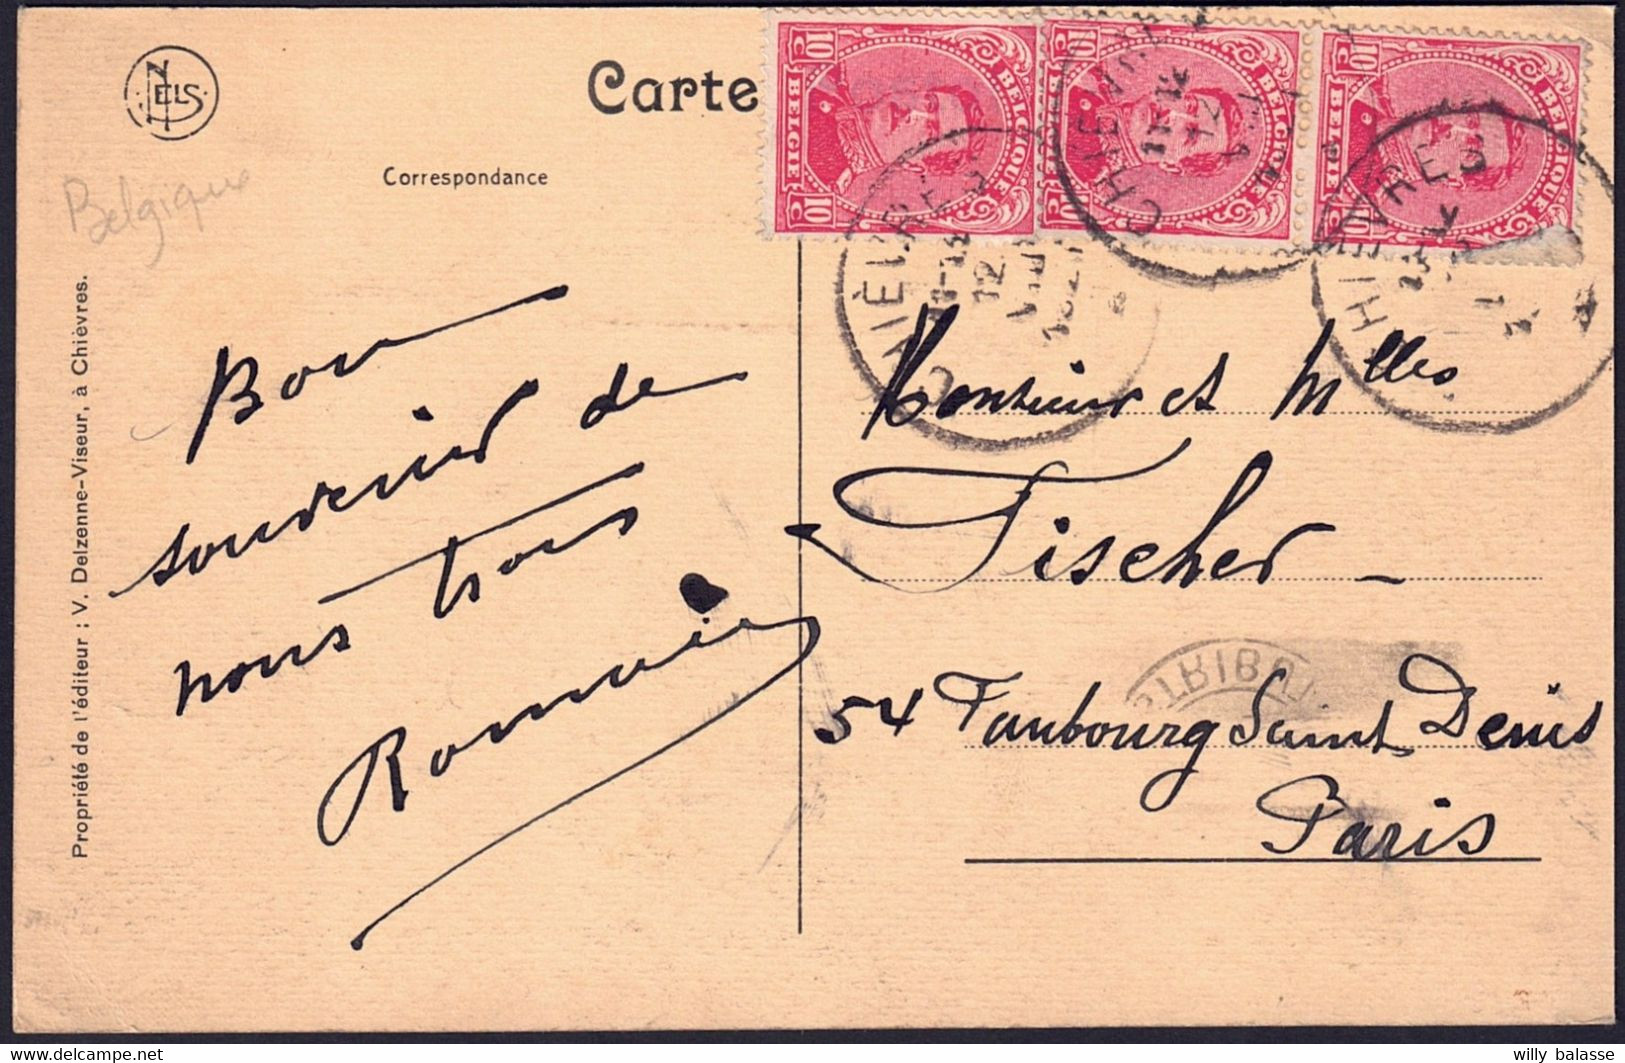 NELS
Carte
Correspondance
Belgique
Propriété de l'éditeur : V. Delzenne-Viseur, à Chièvres.
10 c BELGIQUE BELGIË 10 c
10 c BELGIQUE BELGIË 10 c
10 BELGIQUE BELGIË 10
CHIÈVRES
12
VIII
CHIEVRES
12
CHIEVRES
Bon
souvenir de
nous tous
Romain
Monsieur et Mlles
Fischer
54 Faubourg Saint Denis
Paris
willy balasse